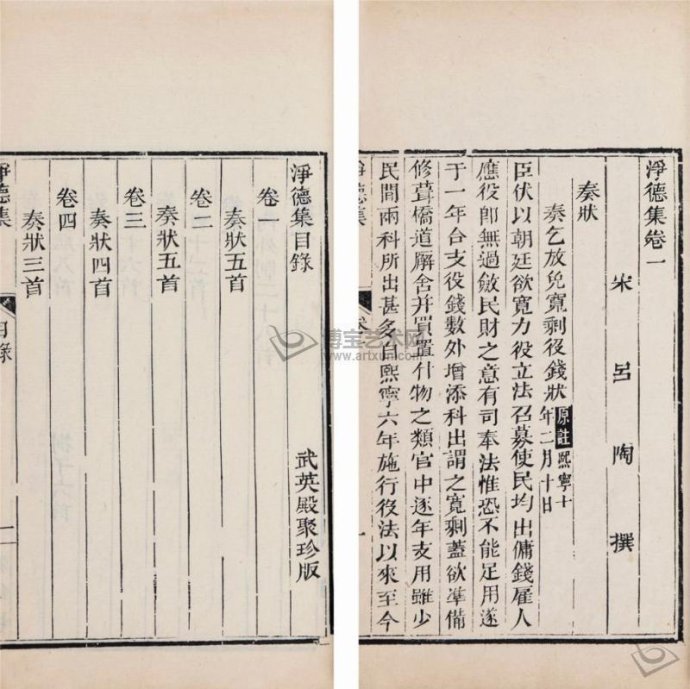 淨德集卷一
宋 呂 陶 撰
奏狀
奏乞放免寬剩役錢狀 原註 熙寧十年二月十日
臣伏以朝廷欲寬力役立法召募使民均出傭錢雇人
應役卽無過斂民財之意有司奉法惟恐不能足用遂
于一年合支役錢數外增添科出謂之寬剩蓋欲準備
修葺橋道廨舍并買置什物之類官中逐年支用雖少
民間兩科所出甚多自熙寧六年施行役法以來至今
淨德集
一
淨德集目錄
武英殿聚珍版
卷一
奏狀五首
卷二
奏狀五首
卷三
奏狀四首
卷四
奏狀三首
淨德集
目錄
一
博宝艺术网
www.artxun.com